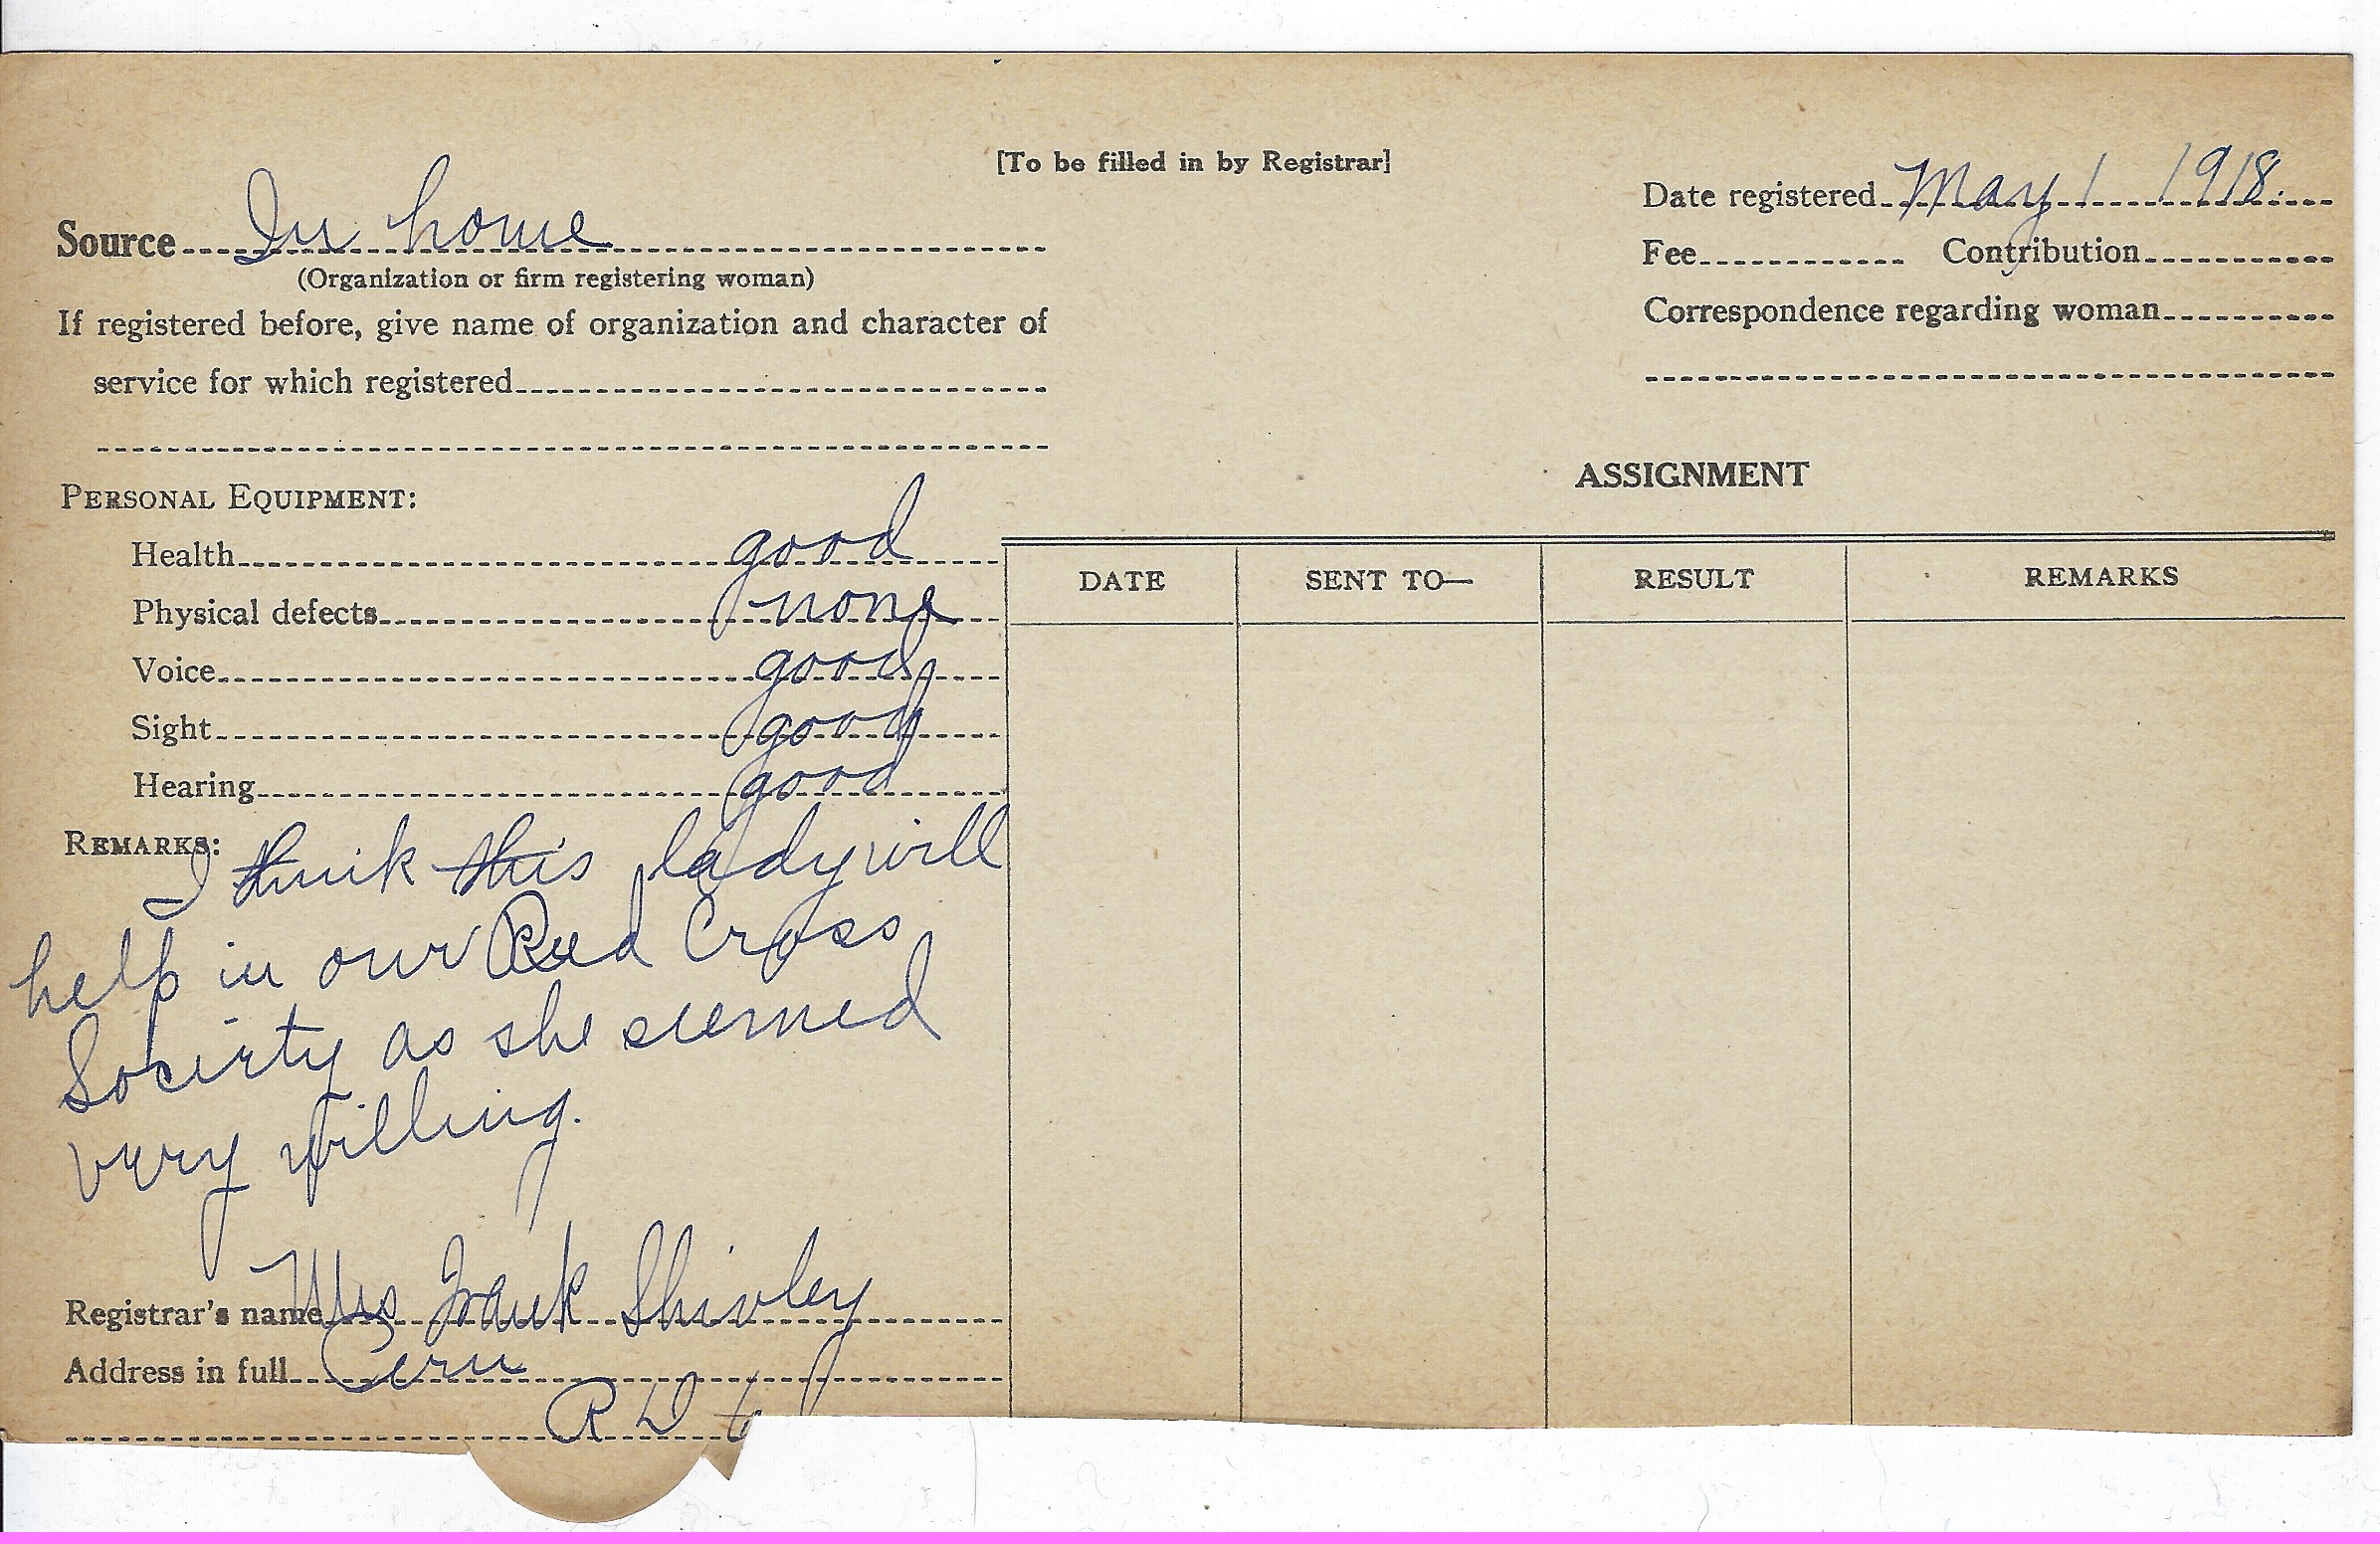 [To be filled in by Registrar]
Source In home
(Organization or firm registering woman)
If registered before, give name of organization and character of
service for which registered
Date registered May 1 1918.
Fee Contribution
Correspondence regarding woman
PERSONAL EQUIPMENT:
Health good
Physical defects none
Voice good
Sight good
Hearing good
REMARKS:
I think this lady will
help in our Red Cross
Society as she seemed
very willing.
Registrar's name Mrs Frank Shivley
Address in full
R D 6
ASSIGNMENT
DATE SENT TO— RESULT REMARKS